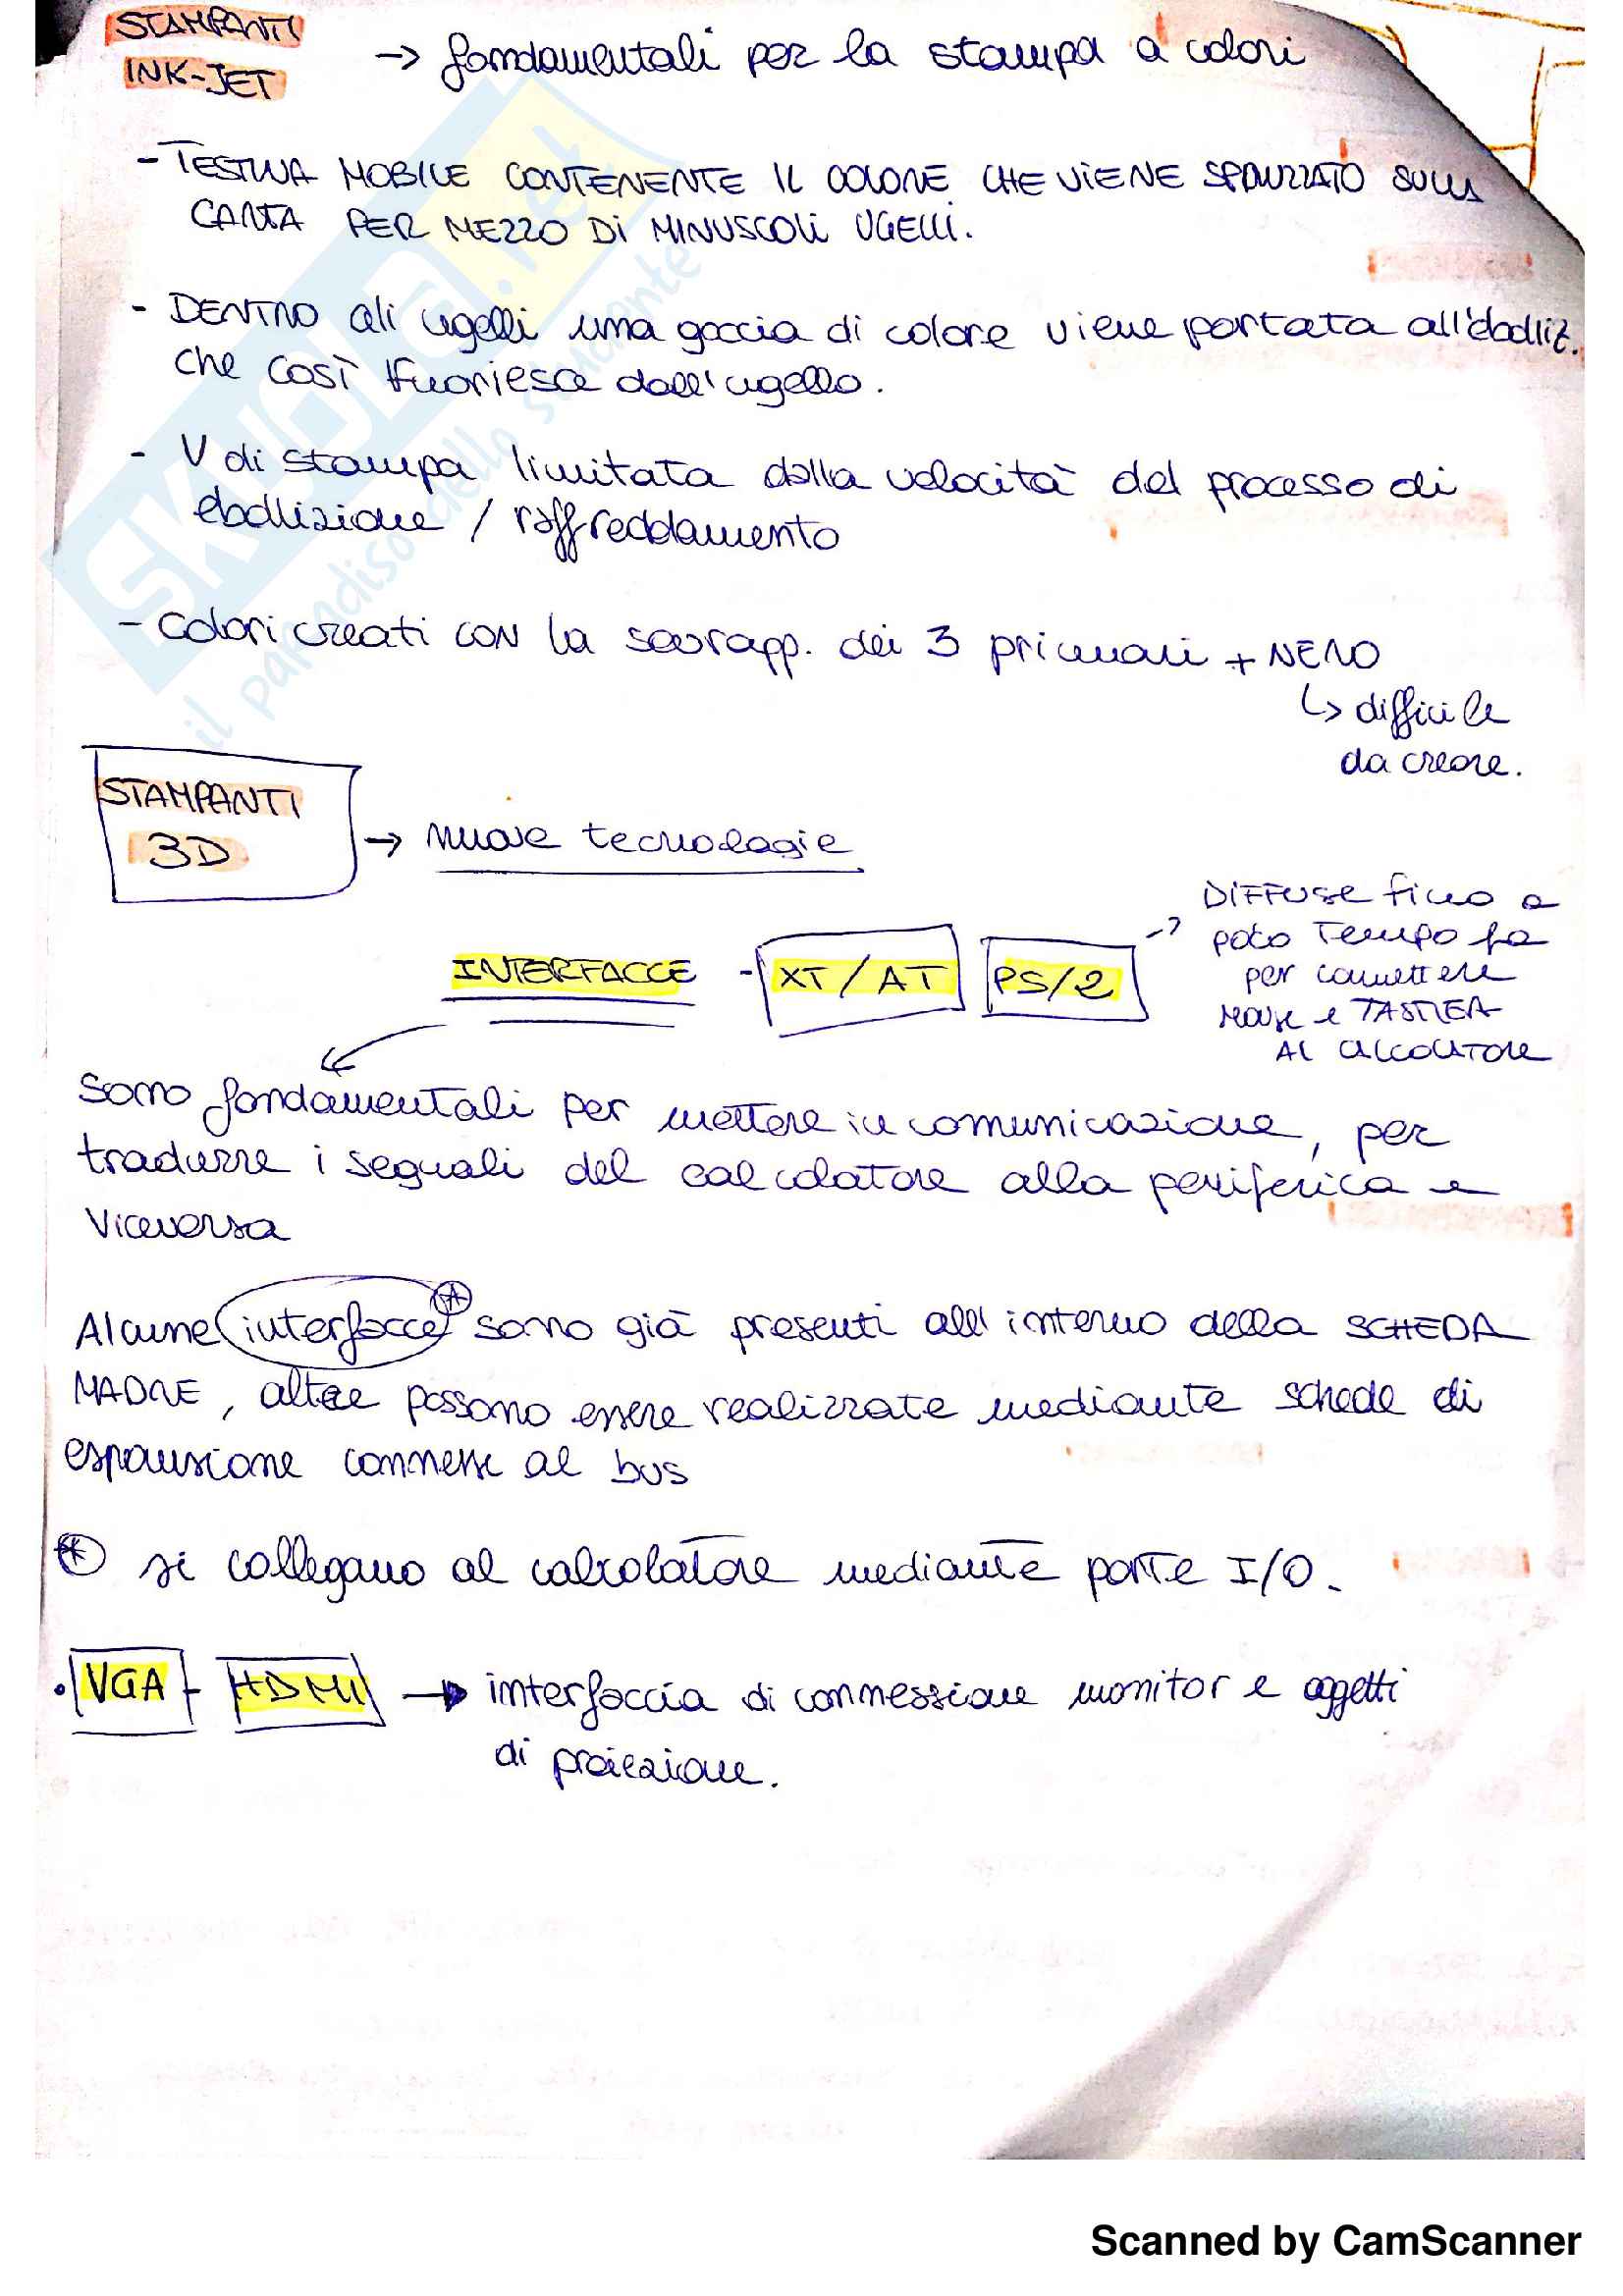 STAMPANTI
INK-JET → fondamentali per la stampa a colori
- TESTINA MOBILE CONTENENTE IL COLORE CHE VIENE SPRUZZATO SULLA
CARTA PER MEZZO DI MINUSCOLI UGELLI.
- DENTRO gli ugelli una goccia di colore viene portata all'ebolliz.
che così fuoriesce dall'ugello.
- V di stampa limitata dalla velocità del processo di
ebollizione / raffreddamento
- Colori creati CON la sovrapp. dei 3 primari + NERO
↳ difficile
da creare.
STAMPANTI
3D → nuove tecnologie
INTERFACCE - XT/AT PS/2 → DIFFUSE fino a
poco Tempo fa
per connettere
MOUSE e TASTIERA
AL CALCOLATORE
Sono fondamentali per mettere in comunicazione, per
tradurre i segnali del calcolatore alla periferica e
Viceversa
Alcune interfacce sono già presenti all'interno della SCHEDA
MADRE, altre possono essere realizzate mediante schede di
espansione connesse al bus
* si collegano al calcolatore mediante porte I/O.
• VGA - HDMI → interfaccia di connessione monitor e oggetti
di proiezione.
SKUOLA.net
il paradiso dello studente
Scanned by CamScanner